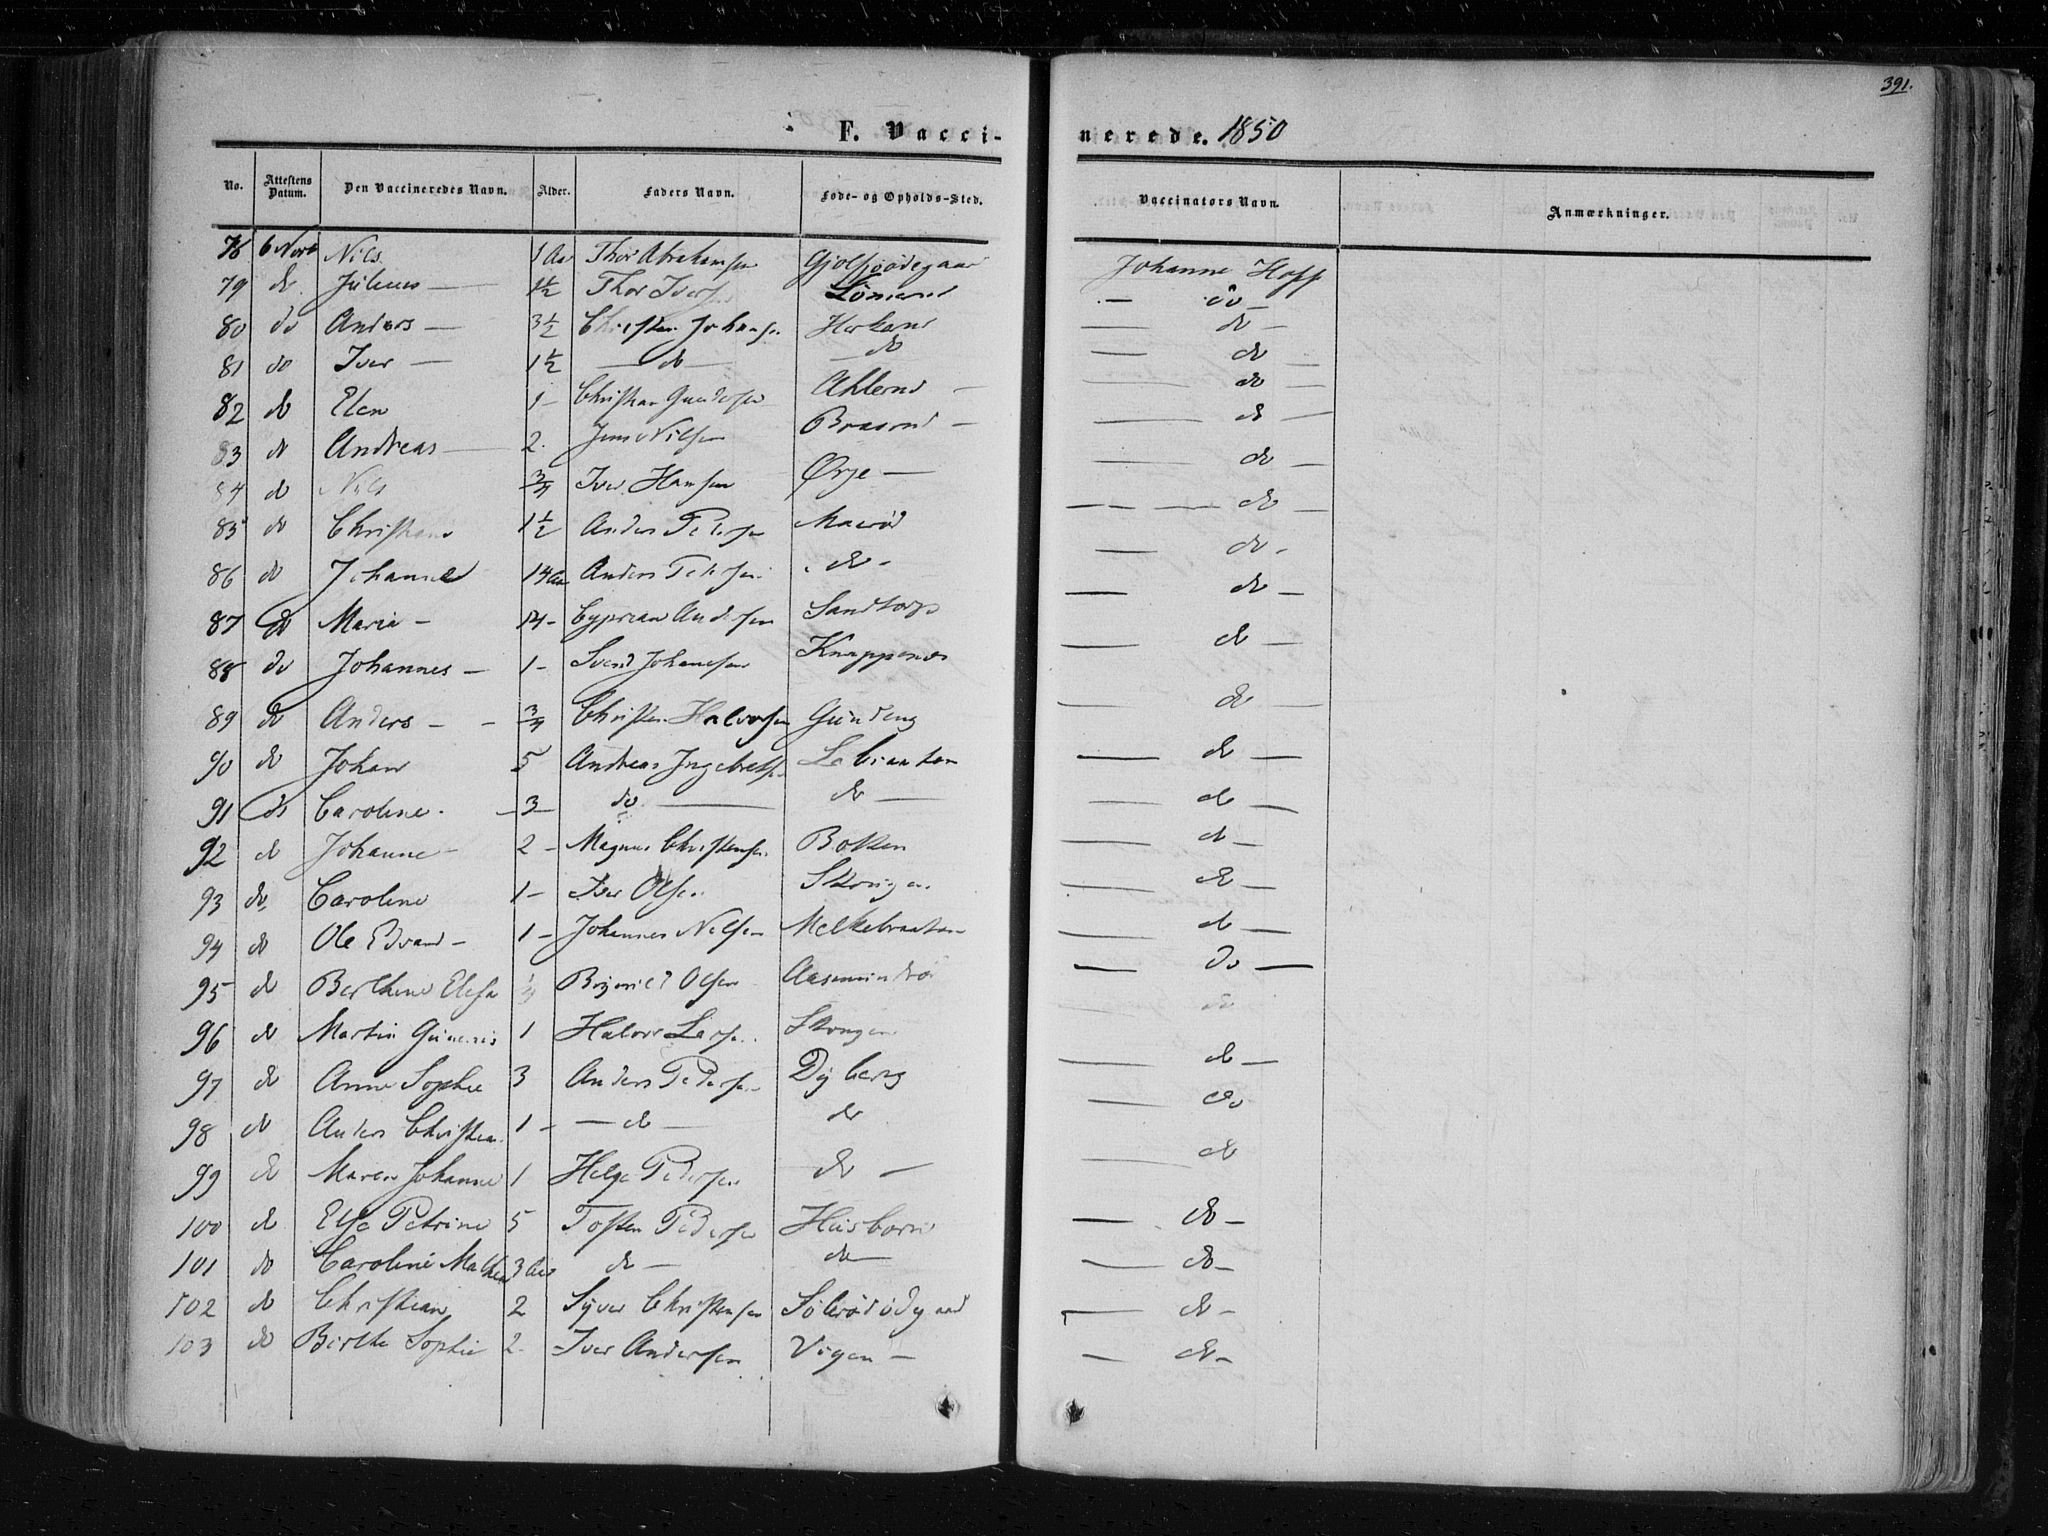 391.
F. Vaccinerede. 1850
No. Attestens Datum. Den Vaccineredes Navn. Alder. Faders Navn. Føde- og Opholds-Sted. Vaccinators Navn. Anmærkninger.
78 6 Novb Nils 1 Aar Thor Abrahamsen Johanne Hoff
79 do Julius — 1½ Thor Iversen — do —
80 do Anders — 3½ Christen Johansen — do —
81 do Iver — 1½ — do — — do — — do —
82 do Elen 1 — Christian Gundersen — do —
83 do Andreas — 2. Jens Nilsen Braarud — — do —
84 do Nils ¾ Iver Hansen Ørje — — do —
85 do Christian 1½ Anders Pedersen — do —
86 do Johanne 14 Aar Anders Pedersen do — — do —
87 do Maria — 14 — Cyprian Andersen Sandtorp — do —
88 do Johannes — 1 — Svend Johanesen Knappenes — do —
89 do Anders — ¾ Christen Halvorsen Gundeng — do —
90 do Johan 5 Andreas Ingebretsen — do —
91 do Caroline. — 3 — do — do — — do —
92 do Johanne — 2 — Magnus Christensen — do —
93 do Caroline 1 — Iver Olsen Skougen — do —
94 do Ole Edvard — 1 — Johannes Nilsen Melkebraaten — do —
95 do Berthine Elisa Olsen Aasmundrø — do —
96 do Martin 1 Halvor Larsen Skougen do
97 do Anne Sophie 3 Anders Pedersen Dyberg — do —
98 do Anders Christian 1 — — do — do — do
99 do Maren Johanne 1 Helge Pedersen do — — do
100 do Else Petrine 5 Tosten Pedersen Husborn — do —
101 do Caroline Mathea 3 Aar do — do — — do —
102 do Christian 2 Syver Christensen Solerødødegaard — do —
103 do Birthe Sophie 2. Iver Andersen Vigen — — do —